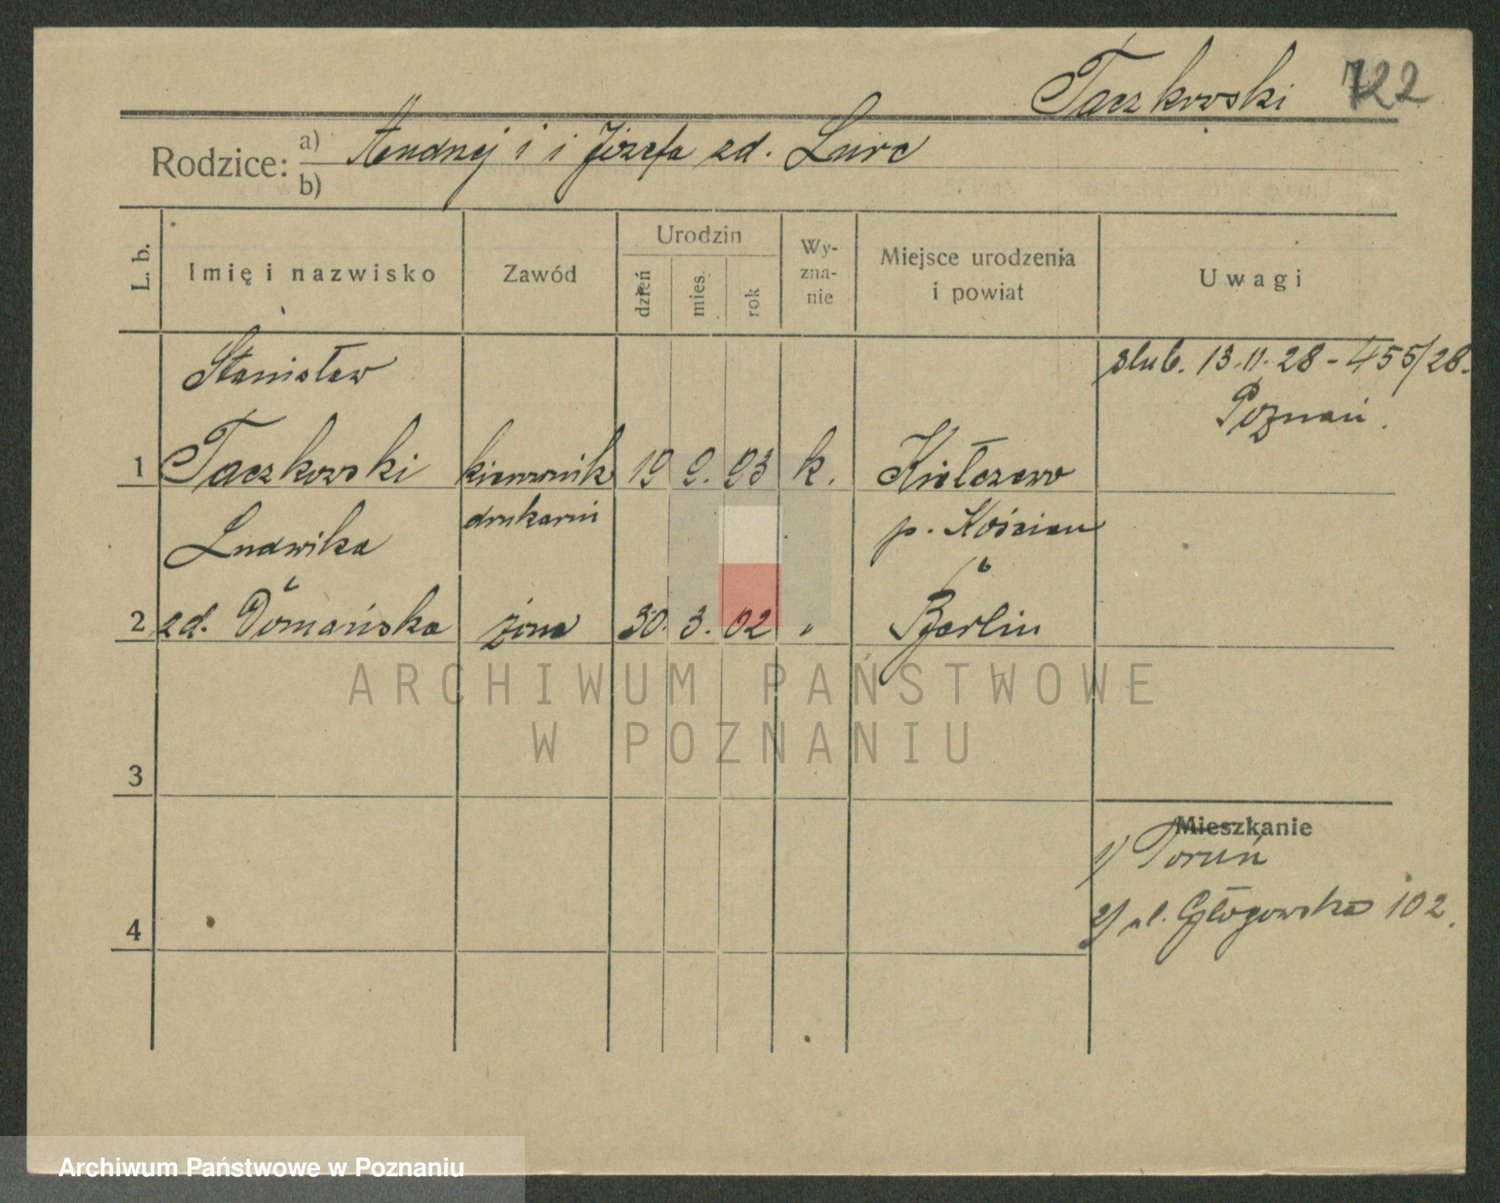 Taczkowski 722
Rodzice: a) Andrzej i i Józefa zd. Lurc
b)
L. b.
Imię i nazwisko
Zawód
Urodzin
dzień
mies.
rok
Wy-
zna-
nie
Miejsce urodzenia
i powiat
Uwagi
Stanisław
ślub. 13.11.28 - 455/28.
Poznań.
1 Taczkowski kierownik 19 9. 93 k. Kiełczewo
drukarni p. Kościan
Ludwika
2 zd. Domańska żona 30. 3. 02 „ Berlin
ARCHIWUM PAŃSTWOWE
W POZNANIU
3
Mieszkanie
1) Toruń
2) ul. Głogowska 102.
4
Archiwum Państwowe w Poznaniu